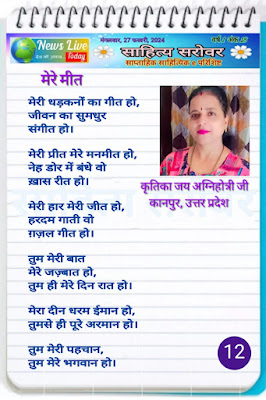 News Live
Today
मंगलवार, 27 फरवरी, 2024
साहित्य सरोवर
साप्ताहिक साहित्यिक ई परिशिष्ट
मेरे मीत
मेरी धड़कनों का गीत हो,
जीवन का सुमधुर
संगीत हो।
मेरी प्रीत मेरे मनमीत हो,
नेह डोर में बंधे वो
ख़ास रीत हो।
मेरी हार मेरी जीत हो,
हरदम गाती वो
ग़ज़ल गीत हो।
तुम मेरी बात
मेरे जज़्बात हो,
तुम ही मेरे दिन रात हो।
मेरा दीन धरम ईमान हो,
तुमसे ही पूरे अरमान हो।
तुम मेरी पहचान,
तुम मेरे भगवान हो।
कृतिका जय अग्निहोत्री जी
कानपुर, उत्तर प्रदेश
12